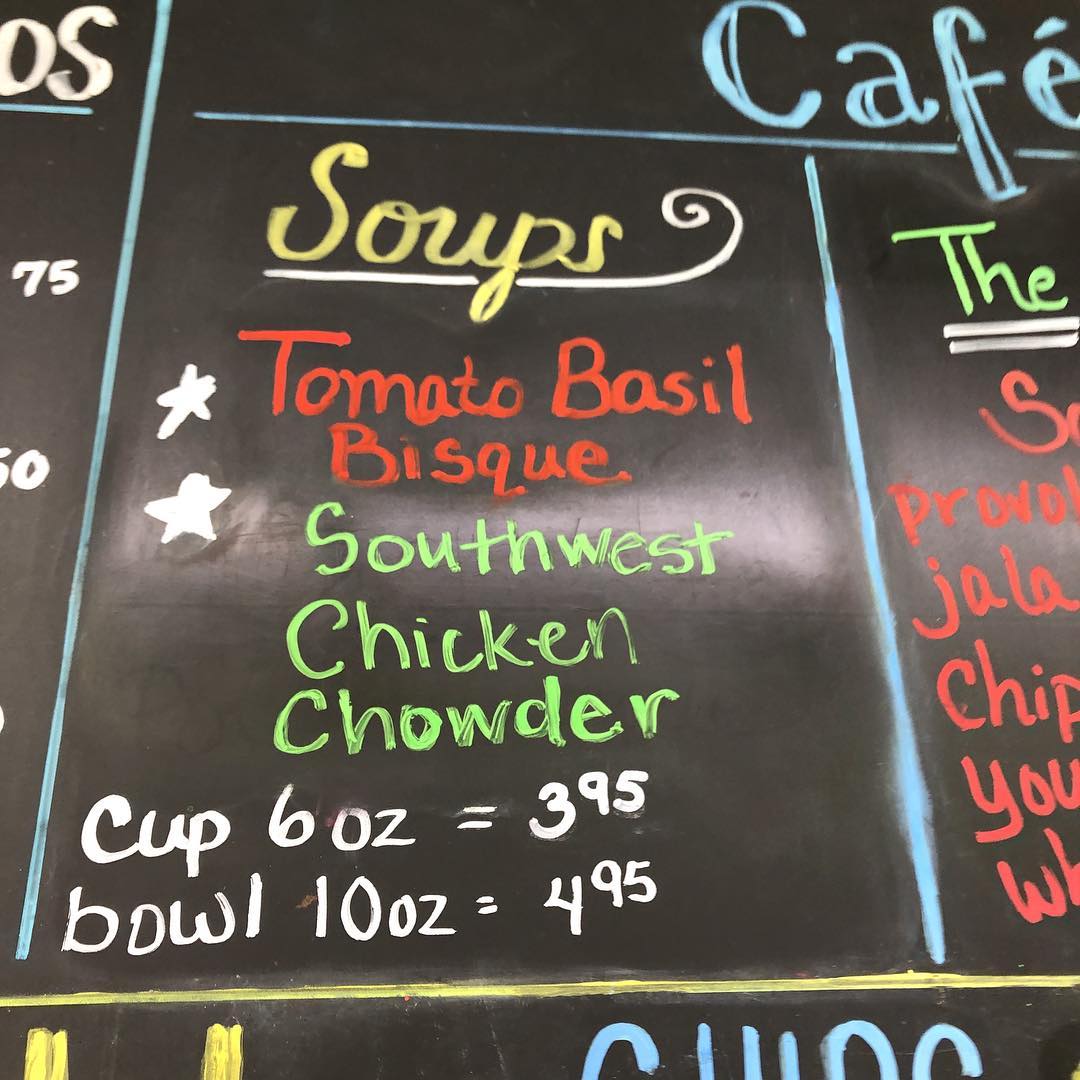 os
Café
75
50
Soups
Tomato Basil
Bisque
Southwest
Chicken
Chowder
Cup 6 oz = 3 95
bowl 10 oz = 4 95
The
So
provol
jala
Chip
you
wh